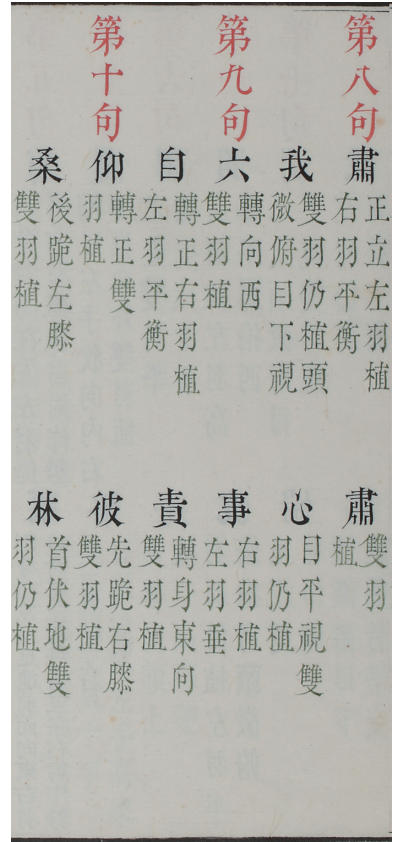 第八句肅正立左羽植右羽平衡肅雙羽植
我雙羽仍植頭微俯目下視心目平視雙羽仍植
第九句六轉向西雙羽植事右羽植左羽垂
自轉正右羽植左羽平衡責轉身東向雙羽植
第十句仰轉正雙羽植彼先跪右膝雙羽植
桑後跪左膝雙羽植林首伏地雙羽仍植